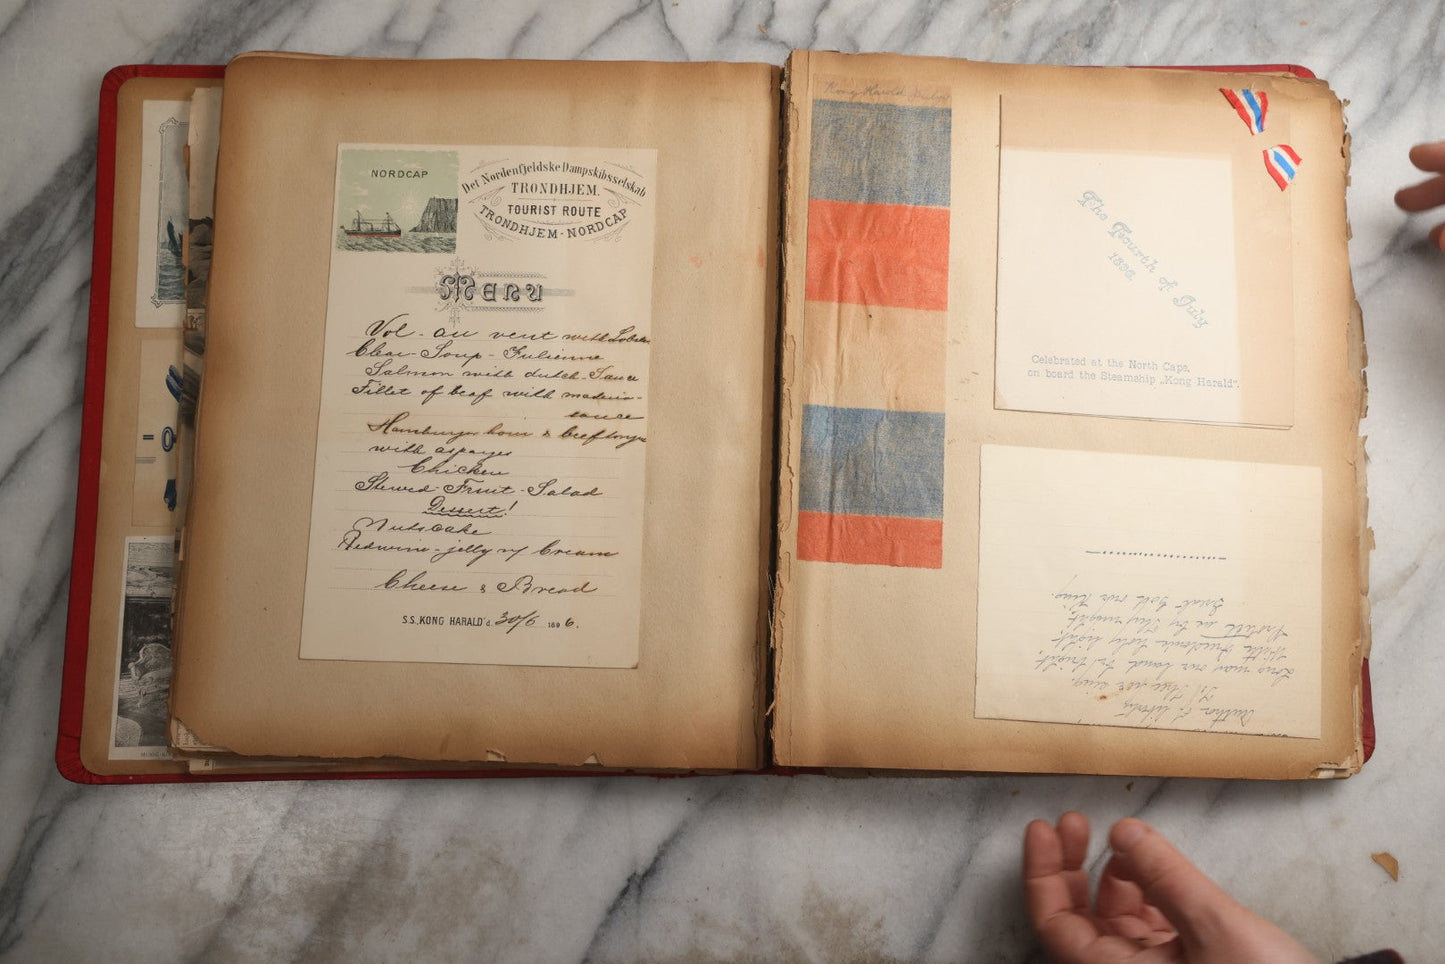 NORDCAP
Det Nordenfjeldske Dampskibsselskab
TRONDHJEM.
TOURIST ROUTE
TRONDHJEM-NORDCAP
Menu
Vol-au vent with Lobster
Clear-Soup-Julienne
Salmon with dutch-Sauce
Fillet of beaf with madeira-
sauce
Hamburger ham & beeftongue
with asparges
Chicken
Stewed-Fruit-Salad
Dessert!
Nutscake
Redwine-jelly w/ Cream
Cheese & Bread
S.S. KONG HARALD d. 30/6 1896.
Kong Harold
The Fourth of July
1896.
Celebrated at the North Cape,
on board the Steamship „Kong Harald".
Author of liberty
To Thee we sing,
Long may our land be bright,
With freedom's holy light,
Protect us by Thy might,
Great God our King.